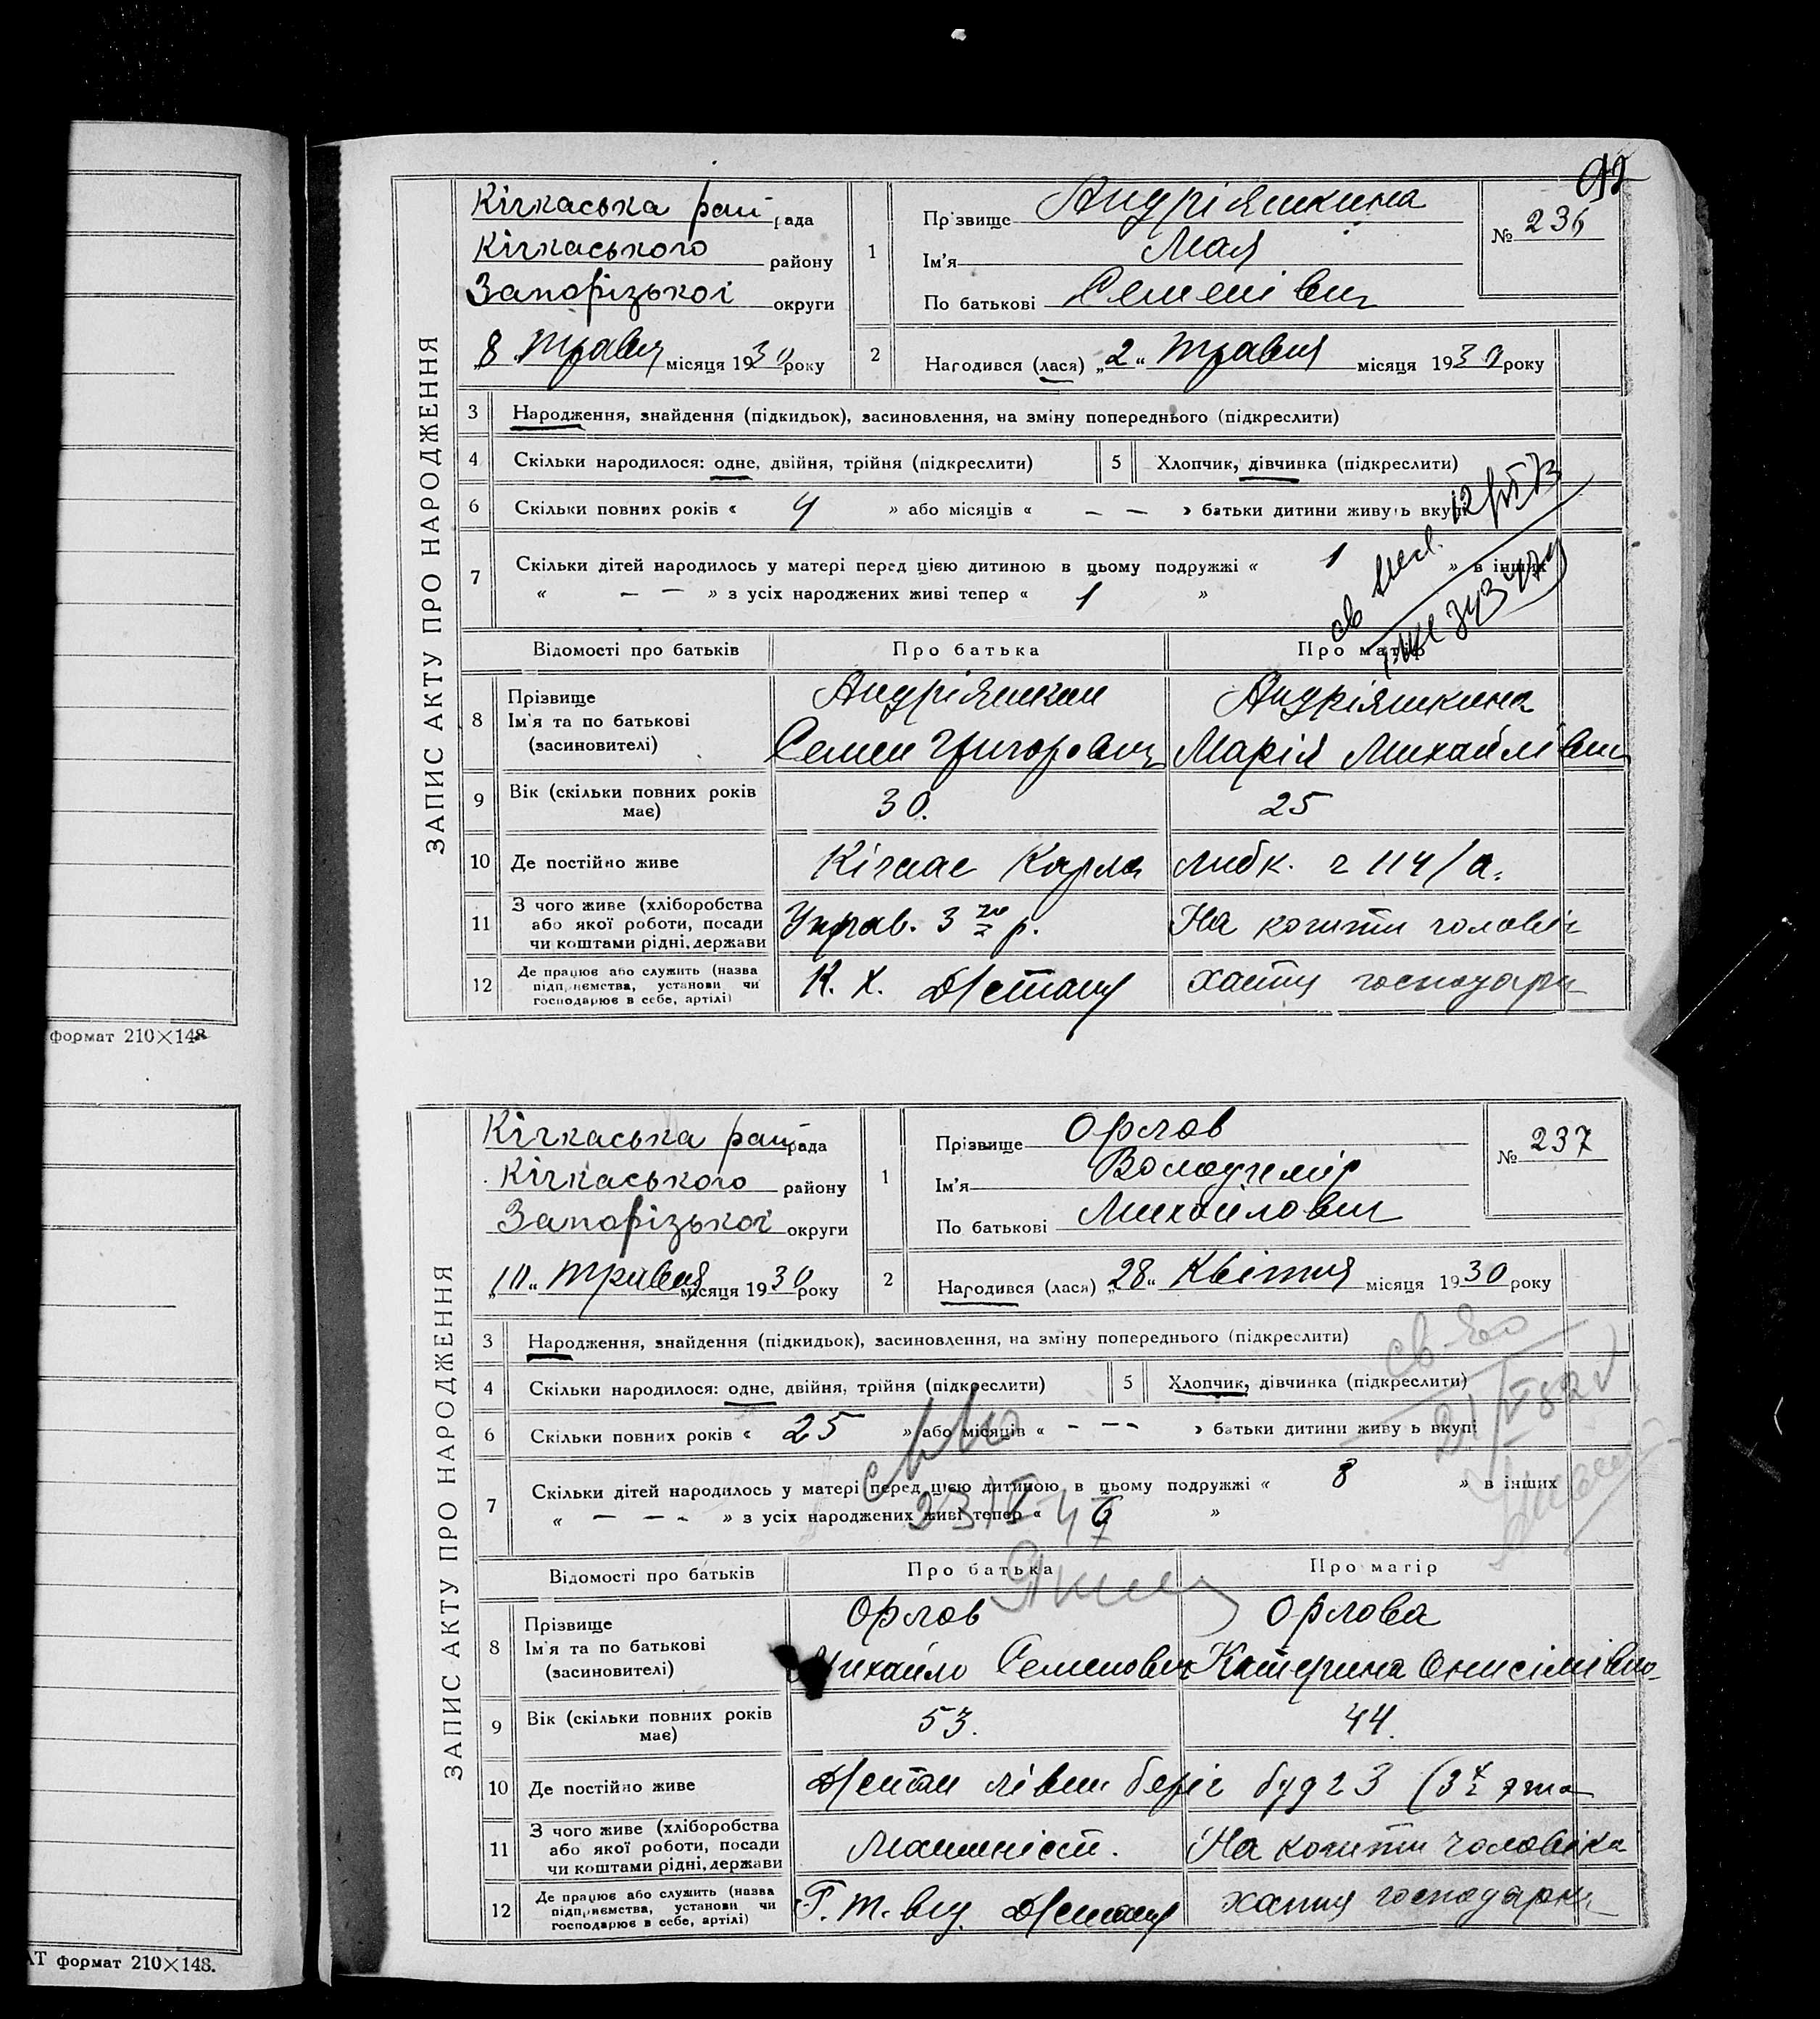 формат 210×148
АТ формат 210×148.
ЗАПИС АКТУ ПРО НАРОДЖЕННЯ
Кічкаська рай рада
Кічкаського району
Запорізької округи
„8 травня місяця 1930 року
1
Прізвище Андріяшкина
Ім'я Мая
По батькові Семенівн
№ 236
2
Народився (лася) „2“ травня місяця 1930 року
3 Народження, знайдення (підкидьок), засиновлення, на зміну попереднього (підкреслити)
4 Скільки народилося: одне, двійня, трійня (підкреслити) 5 Хлопчик, дівчинка (підкреслити)
6 Скільки повних років « 4 » або місяців « – – » батьки дитини живуть вкупі
7 Скільки дітей народилось у матері перед цією дитиною в цьому подружжі « 1 » в інших
« – – » з усіх народжених живі тепер « 1 »
Відомості про батьків Про батька Про матір
8 Прізвище Андріяшкин Андріяшкина
Ім'я та по батькові
(засиновителі) Семен Григорович Марія Михайлівн
9 Вік (скільки повних років має) 30. 25
10 Де постійно живе Кічкас Карла Либк. ч 114/а.
11 З чого живе (хліборобства
або якої роботи, посади
чи коштами рідні, держави Управ. 3 го р. На кошти чоловік
12 Де працює або служить (назва
підприємства, установи чи
господарює в себе, артілі) К. Х. Дн/стану хатня господарк
ЗАПИС АКТУ ПРО НАРОДЖЕННЯ
Кічкаська рай рада
Кічкаського району
Запорізької округи
„10“ травня місяця 1930 року
1
Прізвище Орлов
Ім'я Володимір
По батькові Михайлович
№ 237
2
Народився (лася) „28“ Квітня місяця 1930 року
3 Народження, знайдення (підкидьок), засиновлення, на зміну попереднього (підкреслити)
4 Скільки народилося: одне, двійня, трійня (підкреслити) 5 Хлопчик, дівчинка (підкреслити)
6 Скільки повних років « 25 » або місяців « – – – » батьки дитини живуть вкупі
7 Скільки дітей народилось у матері перед цією дитиною в цьому подружжі « 8 » в інших
« – – – » з усіх народжених живі тепер « 6 »
Відомості про батьків Про батька Про матір
8 Прізвище Орлов Орлова
Ім'я та по батькові
(засиновителі) Михайло Семенович Катерина Онисімівна
9 Вік (скільки повних років має) 53. 44.
10 Де постійно живе Дн/стан лівий беріг буд 23
11 З чого живе (хліборобства
або якої роботи, посади
чи коштами рідні, держави Машиніст. На кошти чоловіка
12 Де працює або служить (назва
підприємства, установи чи
господарює в себе, артілі) Г. Т. від. Дн/стану хатня господарк